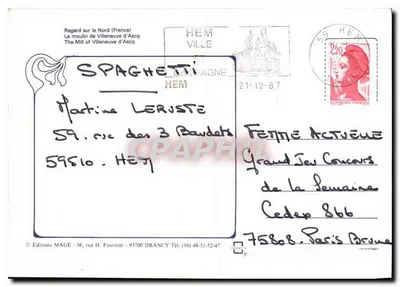 Regard sur le Nord (France)
Le moulin de Villeneuve d'Ascq
The Mill of Villeneuve d'Ascq
HEM
VILLE
HEM
21-12-87
59 HEM
2,20
SPAGHETTI
Martine LERUSTE
59. rue des 3 Baudets
59510. HEM
FEMME ACTUELLE
Grand Jeu Concours
de la Semaine
Cedex 866
75808. Paris Brune
© Editions MAGE - 36, rue H. Fournier - 93700 DRANCY Tél: (16) 48-31-52-47